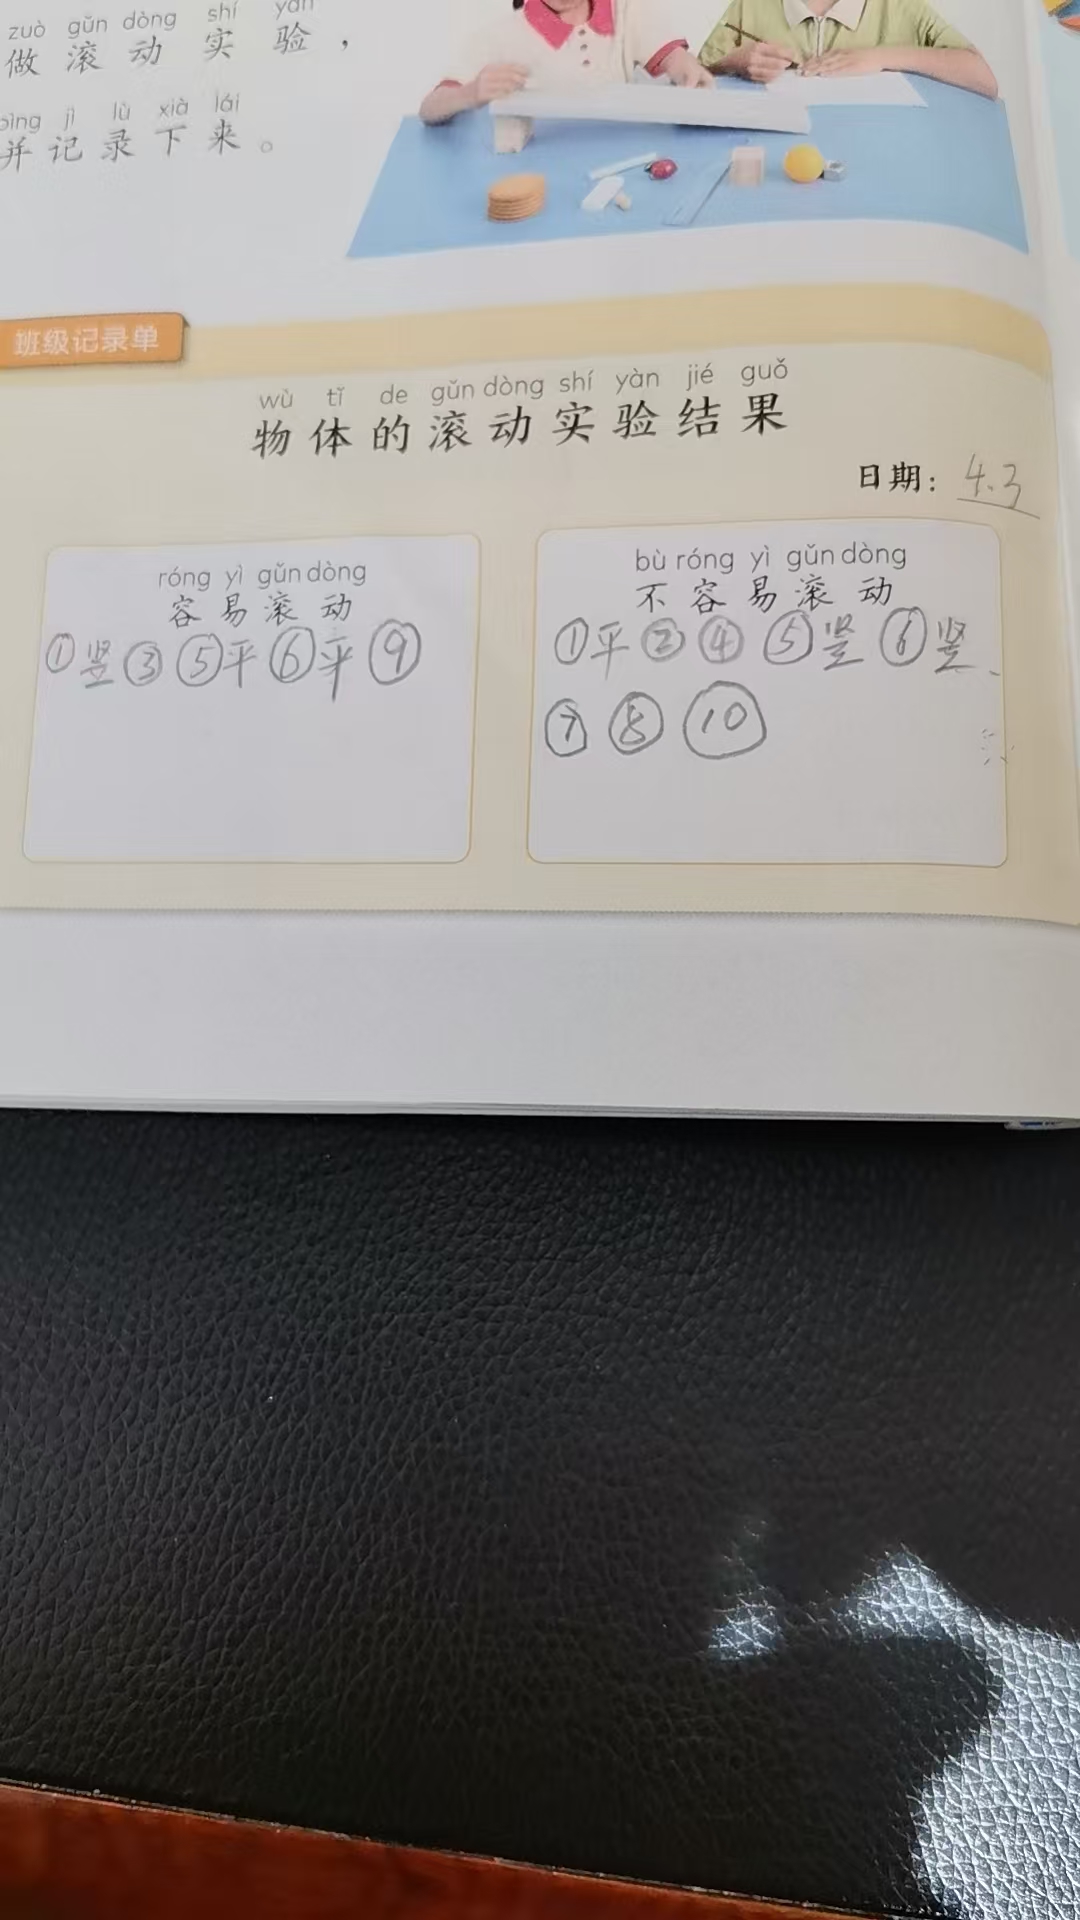 zuò gǔn dòng shí yàn
做滚动实验，
bìng jì lù xià lái
并记录下来。
班级记录单
wù tǐ de gǔn dòng shí yàn jié guǒ
物体的滚动实验结果
日期：4.3
róng yì gǔn dòng
容易滚动
①竖③⑤平⑥平⑨
bù róng yì gǔn dòng
不容易滚动
①平②④⑤竖⑥竖
⑦⑧⑩